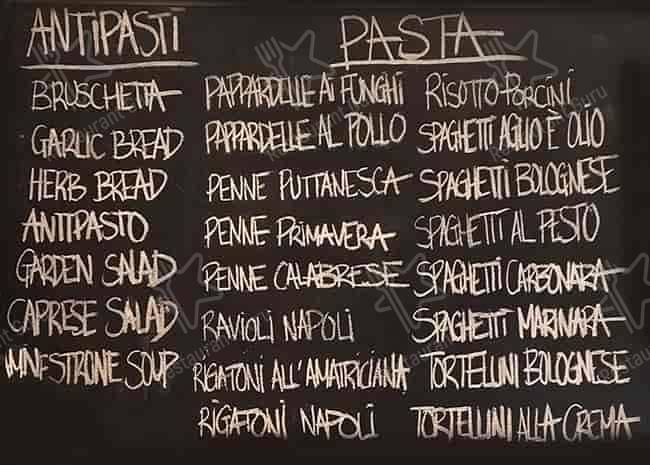 ANTIPASTI
BRUSCHETTA
GARLIC BREAD
HERB BREAD
ANTIPASTO
GARDEN SALAD
CAPRESE SALAD
MINESTRONE SOUP
PASTA
PAPPARDELLE AI FUNGHI
PAPPARDELLE AL POLLO
PENNE PUTTANESCA
PENNE PRIMAVERA
PENNE CALABRESE
RAVIOLI NAPOLI
RIGATONI ALL'AMATRICIANA
RIGATONI NAPOLI
RISOTTO PORCINI
SPAGHETTI AGLIO È OLIO
SPAGHETTI BOLOGNESE
SPAGHETTI AL PESTO
SPAGHETTI CARBONARA
SPAGHETTI MARINARA
TORTELLINI BOLOGNESE
TORTELLINI ALLA CREMA
Restaurant Guru